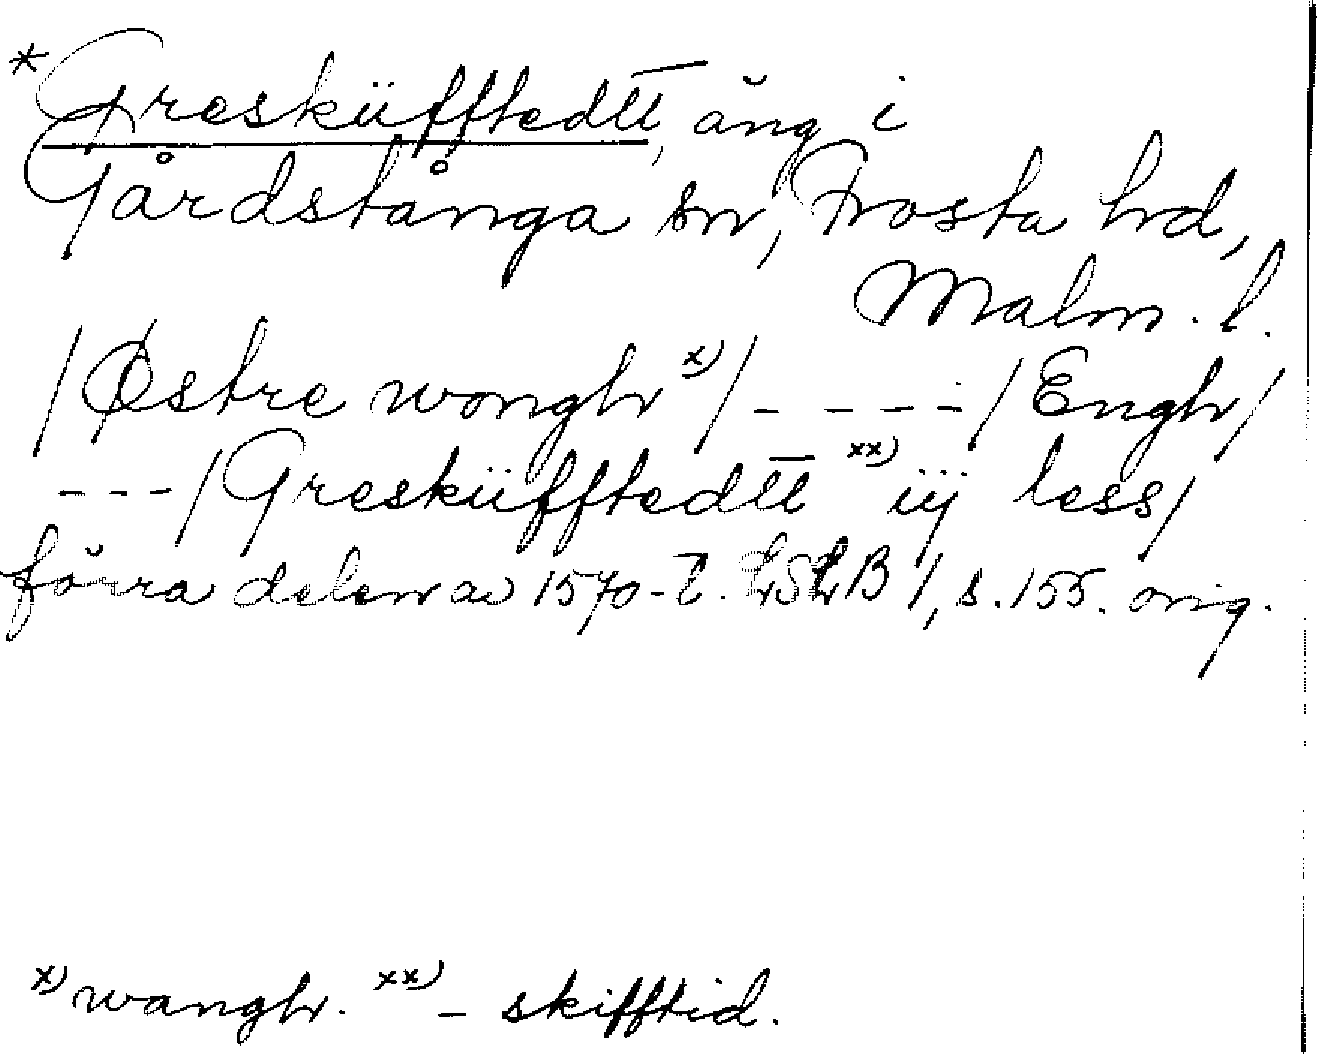 *Gresküfftedtt, äng i
Gårdstånga sn, Frosta hd,
Malm. l.
/Østre wongh x)/ ---- / Engh/
--- / Gresküfftedtt xx) iij less/
förra delen av 1570-t. LSLB 1, s. 155. orig.
x) wangh. xx) - skifftid.